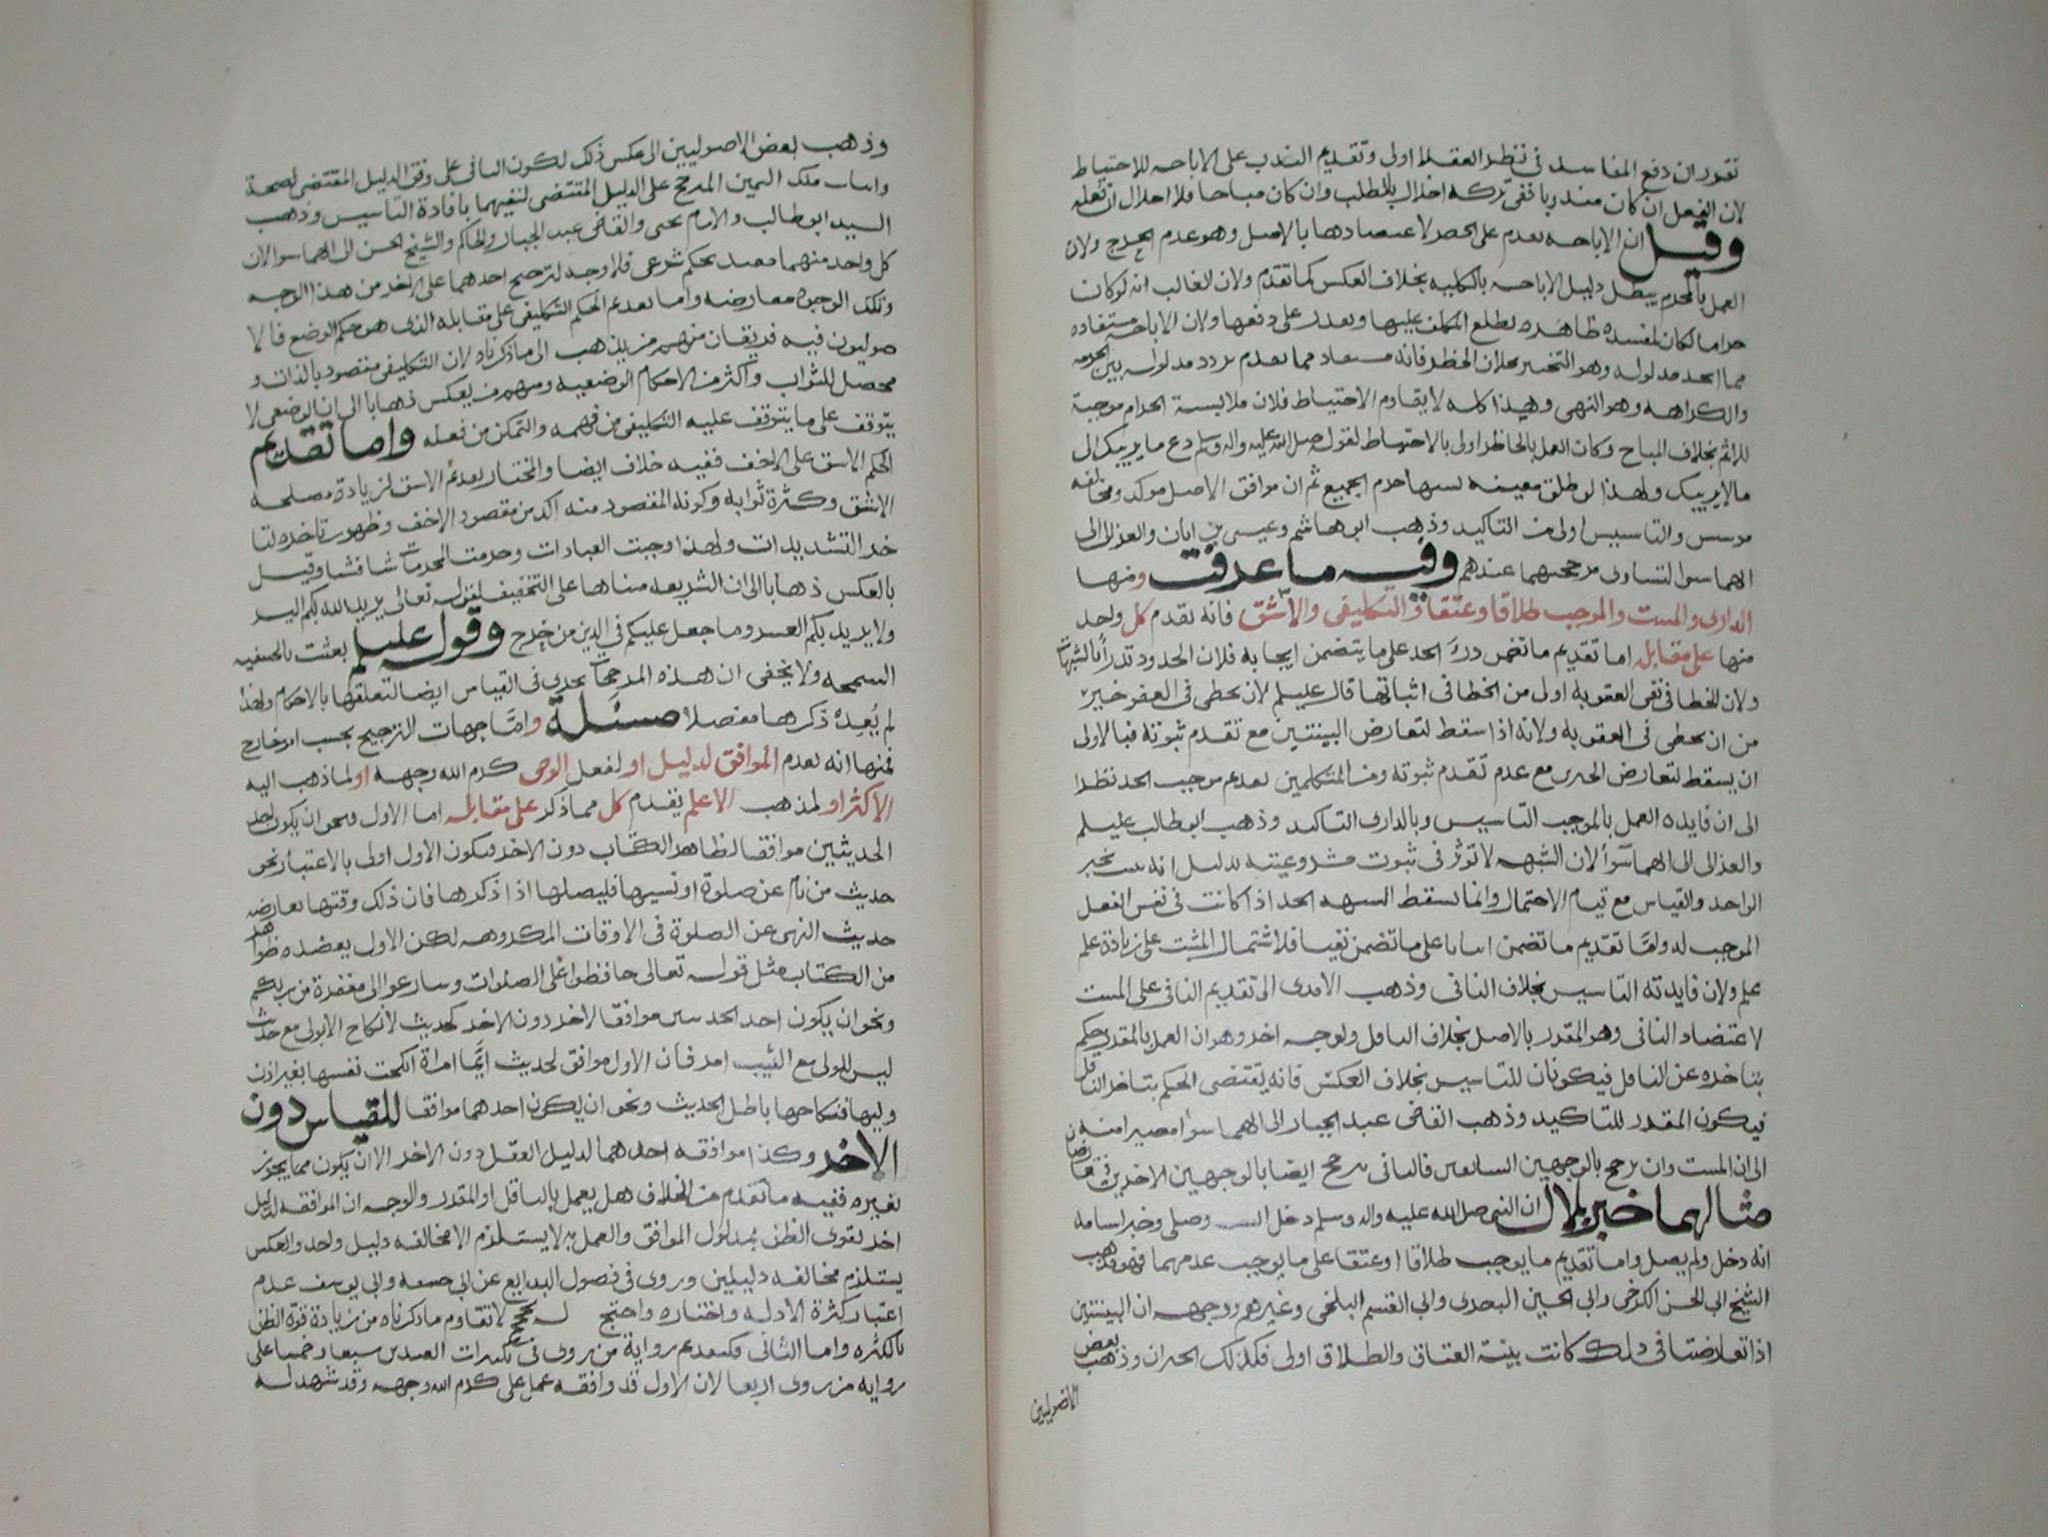 تقرر ان دفع المفاسد في نظر العقلا اولى وتقديم الندب على الاباحه للاحتياط
لان الفعل ان كان مندوبا ففي تركه اخلال بالمطلب وان كان مباحا فلا اخلال ان فعله
وقيل ان الاباحه تقدم على الحظر لاعتضادها بالاصل وهو عدم الحرج ولان
العمل بالمحرم يبطل دليل الاباحه بالكليه بخلاف العكس كما تقدم ولان الغالب انه لو كان
حراما لكان لمفسده ظاهره يطلع المكلف عليها ويقدر على دفعها ولان الاباحه مستفاده
مما اتحد مدلوله وهو التخيير بخلاف الحظر فانه مستفاد مما تقدم تردد مدلوله بين الحرمه
والكراهه وهو النهي وهذا كله لا يقاوم الاحتياط فلان ملابسة الحرام موجبة
للاثم بخلاف المباح وكان العمل بالحاظر اولى بالاحتياط لقوله صلى الله عليه واله وسلم دع ما يريبك الى
ما لا يريبك ولهذا لو طلق معينه نسيها حرم الجميع ثم ان موافق الاصل موكد ومخالفه
موسس والتاسيس اولى من التاكيد وذهب ابو هاشم وعيسى بن ابان والغزالى الى
انهما سوا لتساوى مرجحيهما عندهم وفيه ما عرفت ومنها
الدارى والمثبت والموجب طلاقا وعتقا والتكليفي والاشق فانه يقدم كل واحد
منها على مقابله اما تقديم ما تضمن درء الحد على ما يتضمن ايجابه فلان الحدود تدرأ بالشبهات
ولان الخطا في نفي العقوبه اولى من الخطا في اثباتها قال عليلم لأن يخطى في العفو خير
من ان يخطى في العقوبه ولانه اذا سقط لتعارض البينتين مع تقدم ثبوته فبالاولى
ان يسقط لتعارض الخبرين مع عدم تقدم ثبوته ومن المتكلمين يقدم موجب الحد نظرا
الى ان فايده العمل بالموجب التاسيس وبالدارى التاكيد وذهب ابو طالب عليلم
والغزالى الى انهما سوآ لان الشبهه لا توثر في ثبوت مشروعيته بدليل انه يثبت بخبر
الواحد والقياس مع قيام الاحتمال وانما تسقط الشبهه الحد اذا كانت في نفس الفعل
الموجب له واما تقديم ما تضمن اثباتا على ما تضمن نفيا فلاشتمال المثبت على زيادة علم
علم ولان فايدته التاسيس بخلاف النافي وذهب الامدى الى تقديم النافي على المثبت
لاعتضاد النافي وهو المقدر بالاصل بخلاف الناقل ولوجه اخر وهو ان العمل بالمقدر يحكم
بتاخره عن الناقل فيكونان للتاسيس بخلاف العكس فانه يقتضى الحكم بتاخر الناقل
فيكون المقدر للتاكيد وذهب القاضي عبد الجبار الى انهما سوا مصيرا منه
الى ان المثبت وان ترجح بالوجهين السابقين فالنافي يترجح ايضا بالوجهين الاخرين فتعارضان
مثالهما خبر بلال ان النبي صلى الله عليه واله وسلم دخل البيت وصلى وخبر اسامه
انه دخل ولم يصل واما تقديم ما يوجب طلاقا او عتقا على ما يوجب عدمهما فهو مذهب
الشيخ ابى الحسن الكرخي وابي الحسين البصرى وابي القسم البلخي وغيرهم ووجهه ان البينتين
اذا تعارضتا في ذلك كانت بينة العتاق والطلاق اولى فكذلك الخبران وذهب بعض
الاصوليين
وذهب بعض الاصوليين الى عكس ذلك لكون النافي على وفق الدليل المقتضى لصحة
واثبات ملك اليمين المرجح على الدليل المقتضى لنفيهما بافادة التاسيس وذهب
السيد ابو طالب والامام يحيى والقاضي عبد الجبار والحاكم والشيخ الحسن الى انهما سوا لان
كل واحد منهما مفيد بحكم شرعى فلا وجه لترجيح احدهما على الاخر من هذا الوجه
وتلك الوجوه معارضه واما تقديم الحكم التكليفي على مقابله الذى هو حكم الوضع فالا
صوليون فيه فريقان منهم من يذهب الى ما ذكرناه لان التكليفي مقصود بالذات و
محصل للثواب واكثر من الاحكام الوضعيه ومنهم من يعكس ذهابا الى ان الوضعى لا
يتوقف على ما يتوقف عليه التكليفي من فهمه والتمكن من فعله واما تقديم
الحكم الاشق على الاخف ففيه خلاف ايضا والمختار تقديم الاشق لزيادة مصلحه
الاشق وكثرة ثوابه وكونه المقصود منه اكد من مقصود الاخف وظهور تاخره لتا
خر التشديدات ولهذا وجبت العبادات وحرمت المحرمات شيا فشيا وقيل
بالعكس ذهابا الى ان الشريعه مبناها على التخفيف لقوله تعالى يريد الله بكم اليسر
ولا يريد بكم العسر وما جعل عليكم في الدين من حرج وقوله عليلم بعثت بالحنيفيه
السمحه ولا يخفى ان هذه المرجحات تجرى في القياس ايضا لتعلقها بالاحكام ولهذا
لم يُعِدْه ذكرها مفصلا مسئلة وامّا جهات الترجيح بحسب امر خارج
فمنها انه يقدم الموافق لدليل او لفعل الوصى كرم الله وجهه او لما ذهب اليه
الاكثر او لمذهب الاعلم يقدم كل مما ذكر على مقابله اما الاول فنحو ان يكون احد
الحديثين موافقا لظاهر الكتاب دون الاخر فيكون الاول اولى بالاعتبار نحو
حديث من نام عن صلوة او نسيها فليصلها اذا ذكرها فان ذلك وقتها يعارضه
حديث النهى عن الصلوة في الاوقات المكروهه لكن الاول يعضده ظواهر
من الكتاب مثل قوله تعالى حافظوا على الصلوات وسارعوا الى مغفرة من ربكم
ونحو ان يكون احد الحديثين موافقا لاخر دون الاخر كحديث لا نكاح الا بولى مع حديث
ليس للولى مع الثيب امر فان الاول موافق لحديث ايما امراة انكحت نفسها بغير اذن
وليها فنكاحها باطل الحديث ونحو ان يكون احدهما موافقا للقياس دون
الاخر وكذا موافقه احدهما لدليل العقل دون الاخر الا ان يكون مما يجوز
تغييره ففيه ما تقدم من الخلاف هل يعمل بالناقل او المقدر والوجه ان الموافقه لدليل
اخر تقوى الظن بمدلول الموافق والعمل به لا يستلزم الا مخالفه دليل واحد والعكس
يستلزم مخالفه دليلين وروى في فصول البدايع عن ابي حنيفه وابي يوسف عدم
اعتبار كثرة الادله واختاره واحتج له بحجج لا تقاوم ما ذكرناه من زيادة قوة الظن
بالكثره واما الثاني فكتقديم رواية من روى في تكبيرات العيدين سبعا وخمسا على
روايه من روى اربعا لان الاول قد وافقه عمل على كرم الله وجهه وقد شهد له